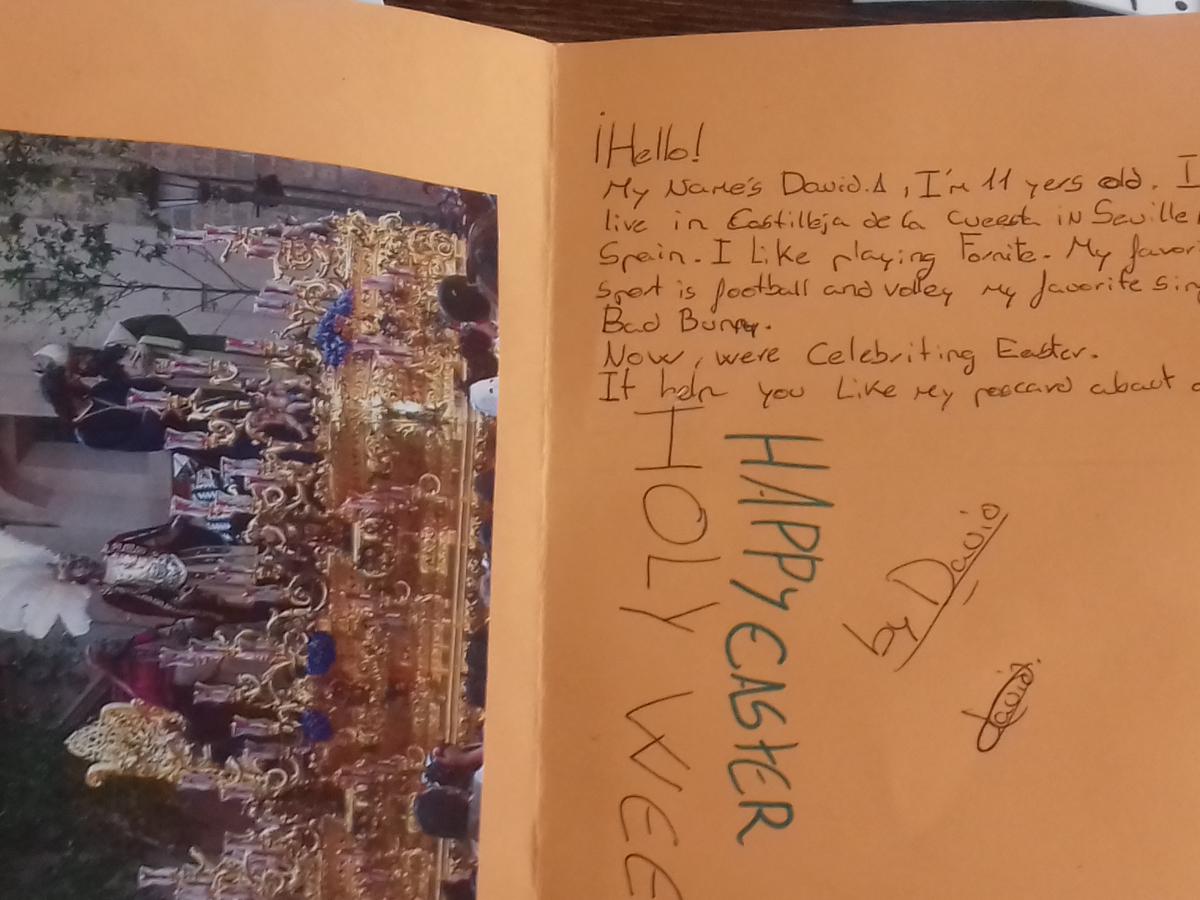 ¡Hello!
My Name's David.A, I'm 11 yers old. I
live in Castilleja de la Cuesta in Seville
Spain. I Like playing Fornite. My favor
sport is football and volley my favorite sin
Bad Bunny.
Now, were Celebriting Easter.
It help you Like My poscard about
HOLY WEE
HAPPY EASTER
by David
David